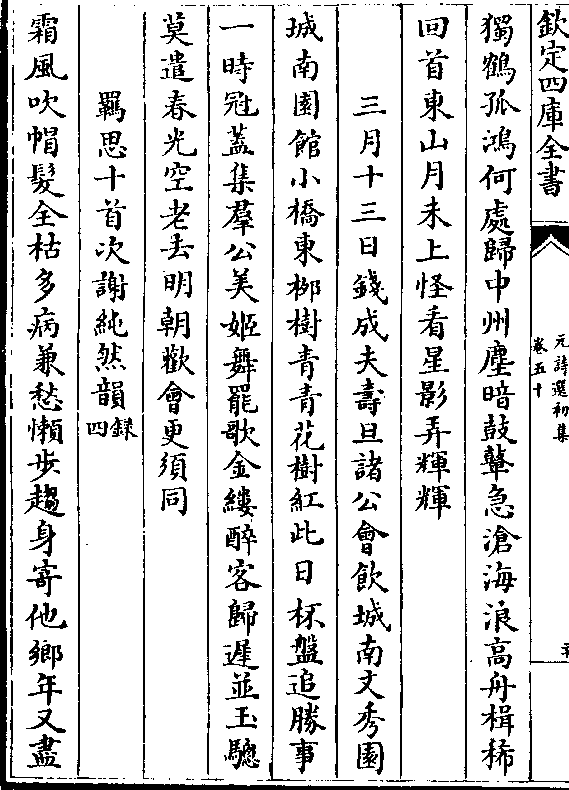 欽定四庫全書
元詩選初集
卷五十
獨鶴孤鴻何處歸中州塵暗鼓鼙急滄海浪高舟楫稀
回首東山月未上怪看星影弄輝輝
三月十三日錢成夫壽旦諸公會飲城南文秀園
城南園館小橋東栁樹青青花樹紅此日杯盤追勝事
一時冠蓋集羣公美姬舞罷歌金縷醉客歸遲並玉驄
莫遣春光空老去明朝歡會更須同
羈思十首次謝純然韻錄四
霜風吹帽髮全枯多病兼愁懶步趨身寄他鄉年又盡